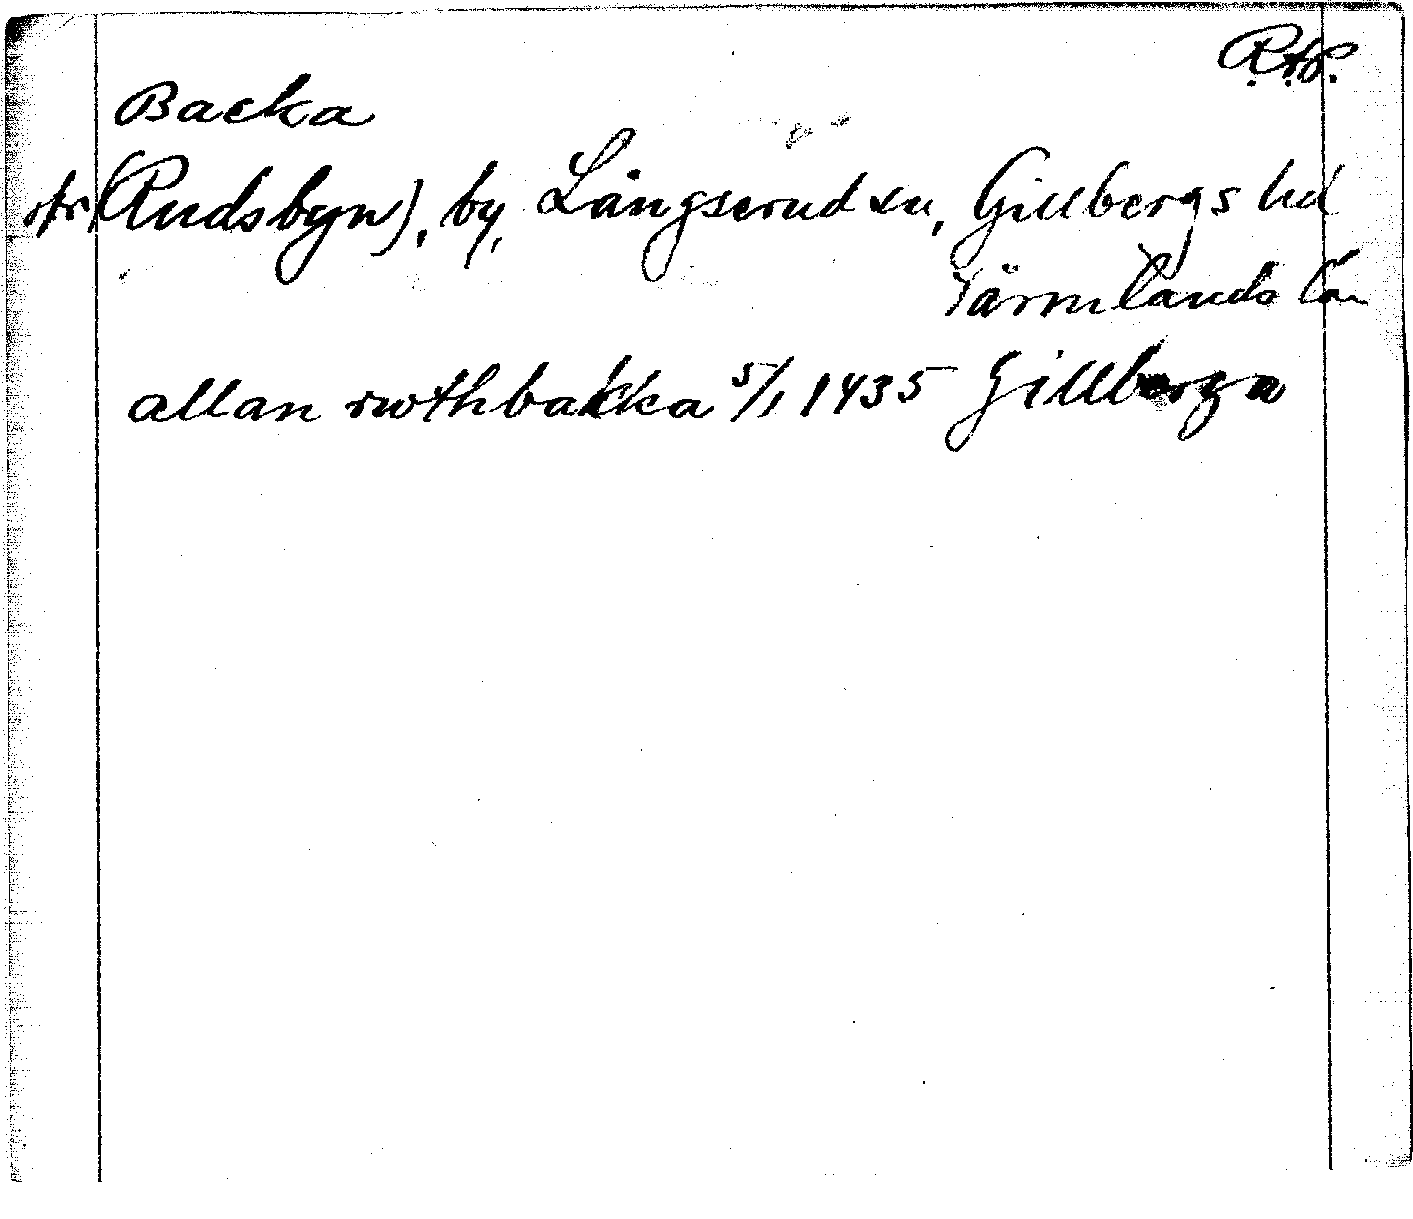 Backa
(Rudsbyn), by, Långserud sn, Gillbergs hd
Värmlands län
allan rwthbakka 5/1 1435 Gillberga